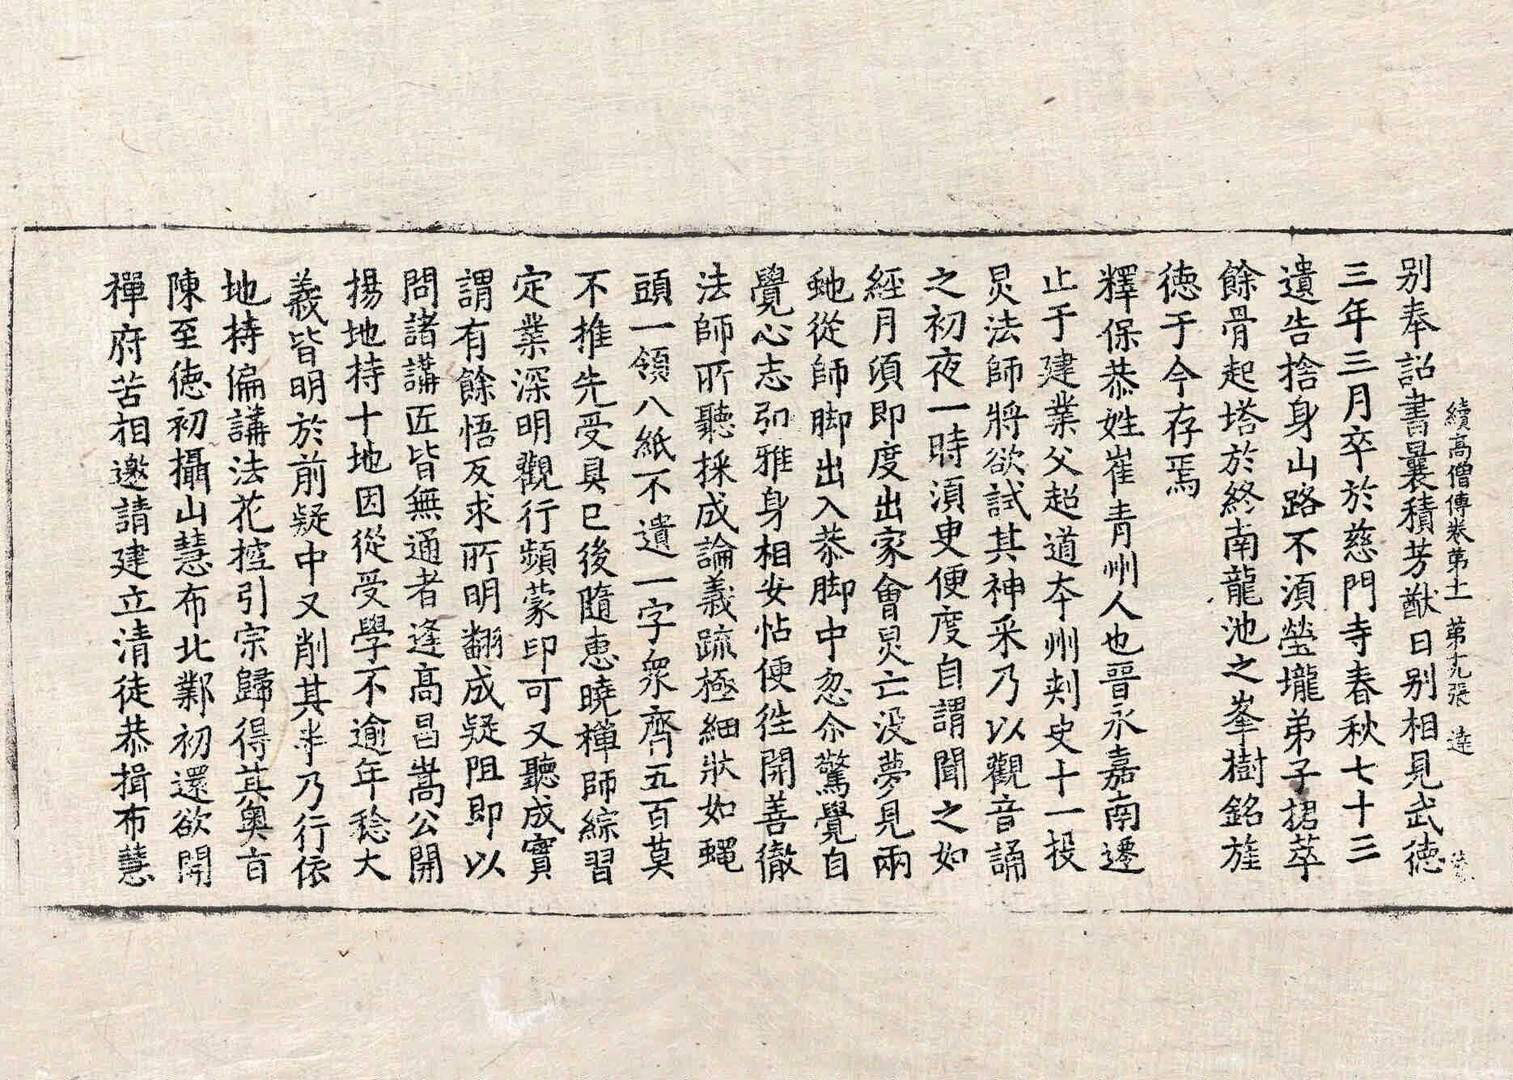 續高僧傳卷第十一 第十九張 達
别奉詔書曩積芳猷日别相見武徳
三年三月卒於慈門寺春秋七十三
遺告捨身山路不須塋壠弟子捃萃
餘骨起塔於終南龍池之峯樹銘旌
徳于今存焉
釋保恭姓崔青州人也晉永嘉南遷
止于建業父超道本州刺史十一投
炅法師將欲試其神采乃以觀音誦
之初夜一時須臾便度自謂聞之如
經月須即度出家會炅亡没夢見兩
虵從師脚出入恭脚中忽尒驚覺自
覺心志弘雅身相安怗便徃開善徹
法師所聽採成論義疏極細狀如蠅
頭一領八紙不遺一字衆齊五百莫
不推先受具已後隨惠曉禪師綜習
定業深明觀行頻蒙印可又聽成實
謂有餘悟反求所明翻成疑阻即以
問諸講匠皆無通者逢高昌嵩公開
揚地持十地因從受學不逾年稔大
義皆明於前疑中又削其半乃行依
地持偏講法花控引宗歸得其奥旨
陳至徳初攝山慧布北鄴初還欲開
禪府苦相邀請建立清徒恭揖布慧